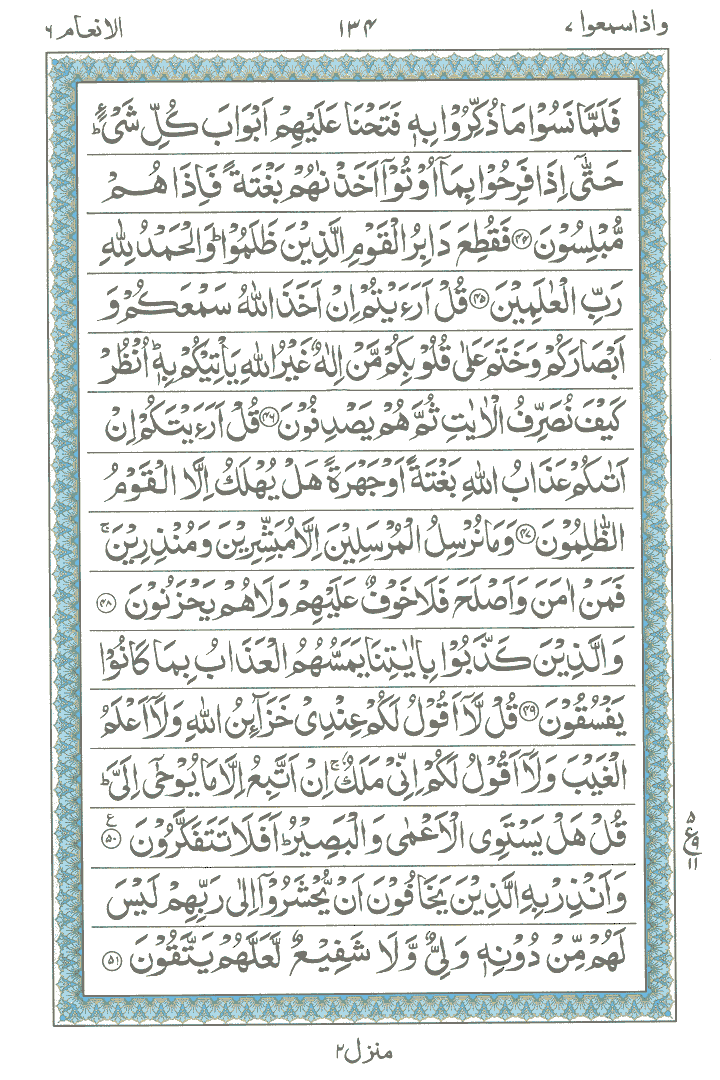 واذاسمعوا ۷
۱۳۴
الانعام ۶
فَلَمَّا نَسُوْا مَا ذُكِّرُوْا بِهٖ فَتَحْنَا عَلَيْهِمْ اَبْوَابَ كُلِّ شَيْءٍ ؕ
حَتّٰۤى اِذَا فَرِحُوْا بِمَاۤ اُوْتُوْۤا اَخَذْنٰهُمْ بَغْتَةً فَاِذَا هُمْ
مُّبْلِسُوْنَ ﴿۴۴﴾ فَقُطِعَ دَابِرُ الْقَوْمِ الَّذِيْنَ ظَلَمُوْا ؕ وَالْحَمْدُ لِلّٰهِ
رَبِّ الْعٰلَمِيْنَ ﴿۴۵﴾ قُلْ اَرَءَيْتُمْ اِنْ اَخَذَ اللّٰهُ سَمْعَكُمْ وَ
اَبْصَارَكُمْ وَخَتَمَ عَلٰى قُلُوْبِكُمْ مَّنْ اِلٰهٌ غَيْرُ اللّٰهِ يَاْتِيْكُمْ بِهٖ ؕ اُنْظُرْ
كَيْفَ نُصَرِّفُ الْاٰيٰتِ ثُمَّ هُمْ يَصْدِفُوْنَ ﴿۴۶﴾ قُلْ اَرَءَيْتَكُمْ اِنْ
اَتٰىكُمْ عَذَابُ اللّٰهِ بَغْتَةً اَوْ جَهْرَةً هَلْ يُهْلَكُ اِلَّا الْقَوْمُ
الظّٰلِمُوْنَ ﴿۴۷﴾ وَمَا نُرْسِلُ الْمُرْسَلِيْنَ اِلَّا مُبَشِّرِيْنَ وَمُنْذِرِيْنَ ۚ
فَمَنْ اٰمَنَ وَاَصْلَحَ فَلَا خَوْفٌ عَلَيْهِمْ وَلَا هُمْ يَحْزَنُوْنَ ﴿۴۸﴾
وَالَّذِيْنَ كَذَّبُوْا بِاٰيٰتِنَا يَمَسُّهُمُ الْعَذَابُ بِمَا كَانُوْا
يَفْسُقُوْنَ ﴿۴۹﴾ قُلْ لَّاۤ اَقُوْلُ لَكُمْ عِنْدِيْ خَزَآئِنُ اللّٰهِ وَلَاۤ اَعْلَمُ
الْغَيْبَ وَلَاۤ اَقُوْلُ لَكُمْ اِنِّيْ مَلَكٌ ۚ اِنْ اَتَّبِعُ اِلَّا مَا يُوْحٰۤى اِلَيَّ ؕ
قُلْ هَلْ يَسْتَوِى الْاَعْمٰى وَالْبَصِيْرُ ؕ اَفَلَا تَتَفَكَّرُوْنَ ﴿۵۰﴾ ع
۵
ع ۹
۱۱
وَاَنْذِرْ بِهِ الَّذِيْنَ يَخَافُوْنَ اَنْ يُّحْشَرُوْۤا اِلٰى رَبِّهِمْ لَيْسَ
لَهُمْ مِّنْ دُوْنِهٖ وَلِيٌّ وَّلَا شَفِيْعٌ لَّعَلَّهُمْ يَتَّقُوْنَ ﴿۵۱﴾
منزل ۲